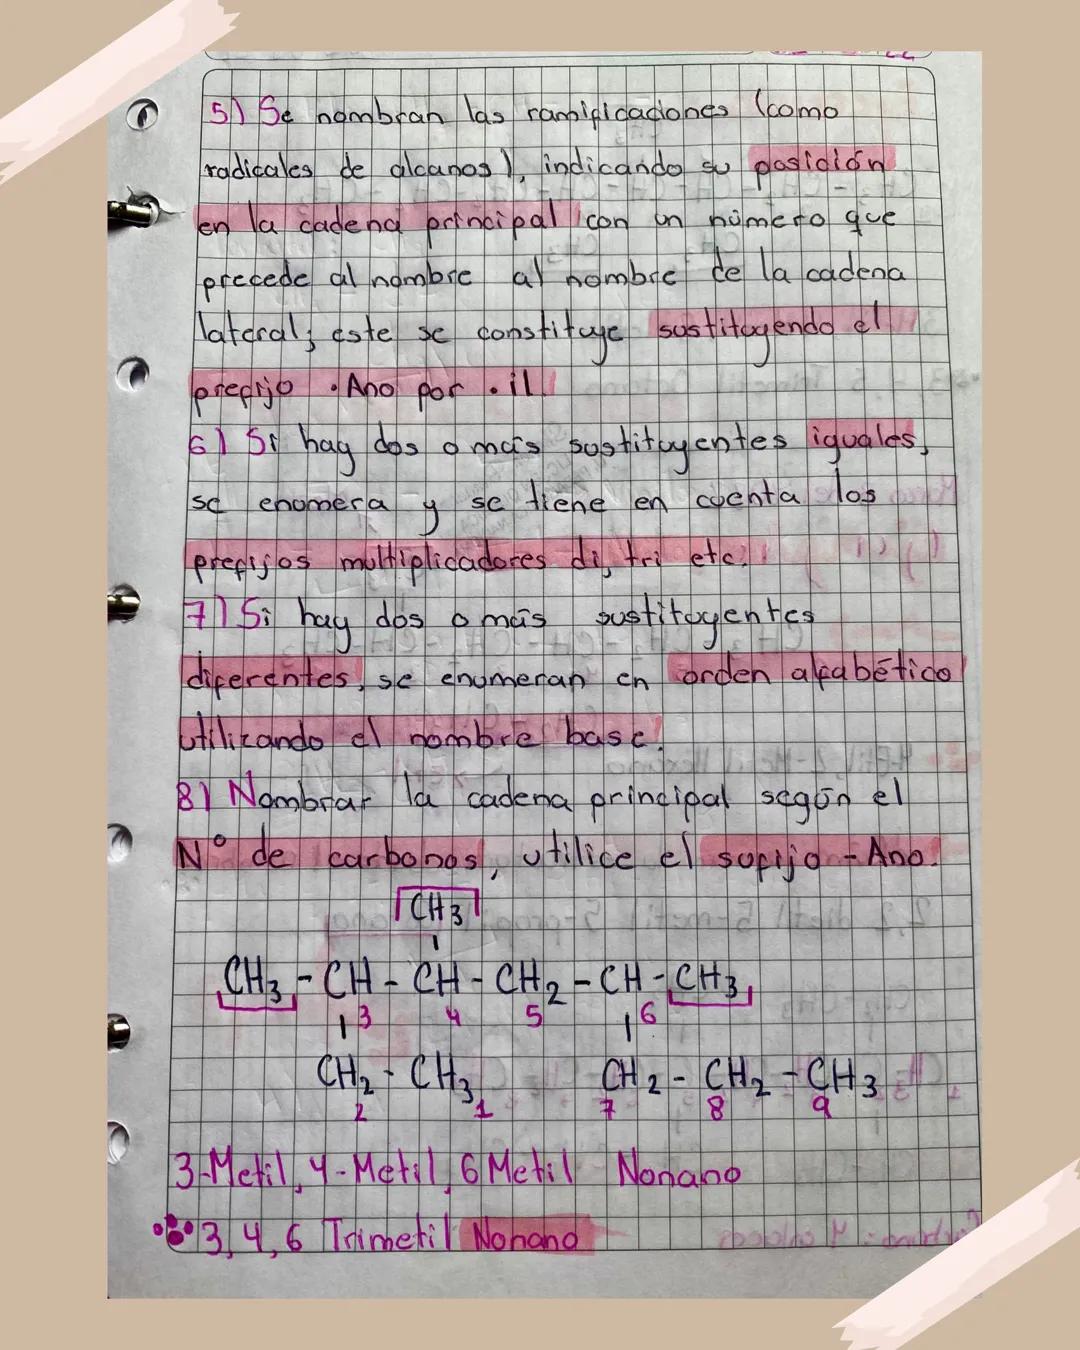 5) Se nombran las ramificaciones (como
radicales de alcanos), indicando su posición
en la cadena principal con un número que
precede al nombre al nombre de la cadena
lateral; este se constituye sustituyendo el
prefijo · Ano por · il.
6) Si hay dos o más sustituyentes iguales,
se enumera y se tiene en cuenta los
prefijos multiplicadores di, tri etc.
7) Si hay dos o más sustituyentes
diferentes, se enumeran en orden alfabético
utilizando el nombre base.
8) Nombrar la cadena principal según el
N° de carbonos, utilice el sufijo - Ano.
CH3
CH3 - CH - CH - CH2 - CH - CH3
3 4 5 6
CH2 - CH3 CH2 - CH2 - CH3
2 1 7 8 9
3-Metil, 4-Metil, 6 Metil Nonano
3, 4, 6 Trimetil Nonano